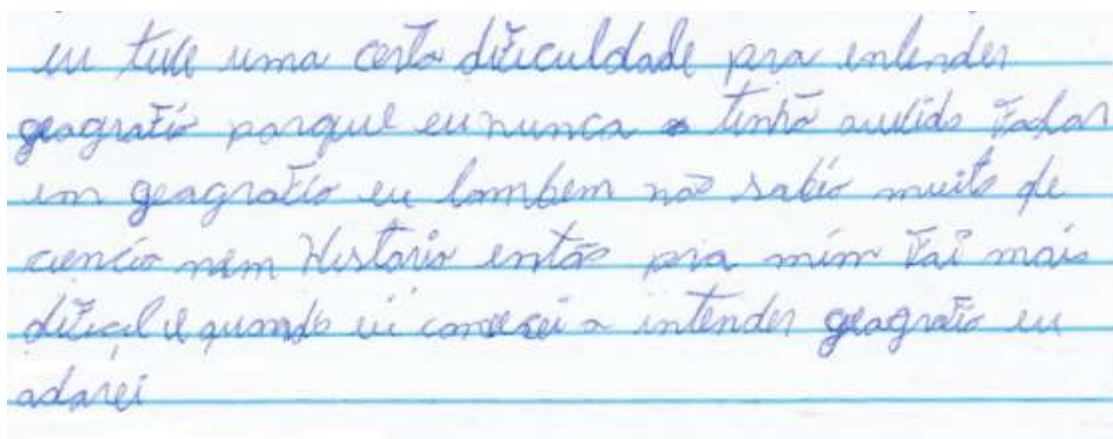 eu tive uma certa dificuldade pra entender
geografia porque eu nunca tinha ouvido falar
em geografia eu também não sabia muito de
ciencia nem Historia então pra mim foi mais
dificil e quando eu comecei a intender geografia eu
adorei